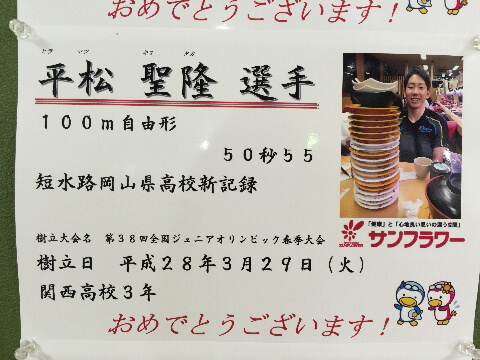 おめでとうございます！
ヒラ マツ キヨ タカ
平松 聖隆 選手
100m自由形
50秒55
短水路岡山県高校新記録
樹立大会名 第38回全国ジュニアオリンピック春季大会
樹立日 平成28年3月29日（火）
関西高校3年
「健康」と「心地良い憩いの漂う空間」
サンフラワー
おめでとうございます！